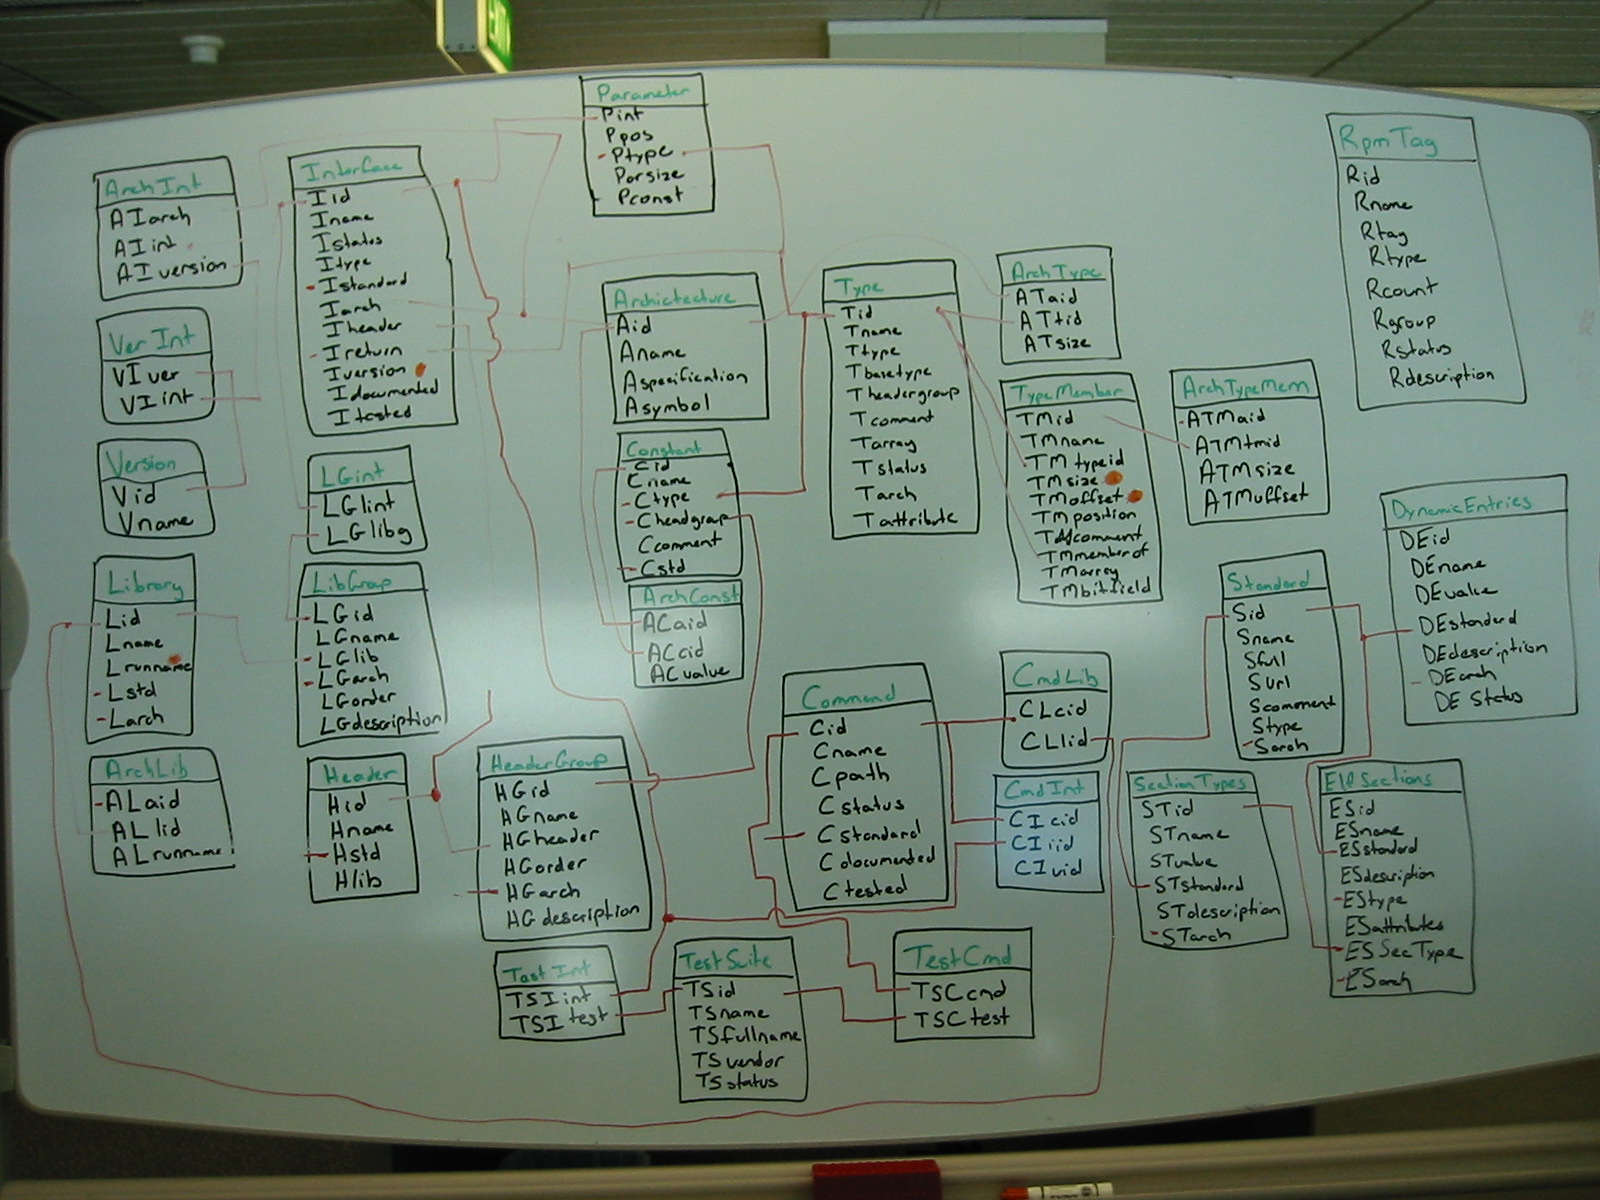 EXIT
Parameter
Pint
Ppos
Ptype
Parsize
Pconst
RpmTag
Rid
Rname
Rtag
Rtype
Rcount
Rgroup
Rstatus
Rdescription
ArchInt
AIarch
AIint
AIversion
Interface
Iid
Iname
Istatus
Itype
Istandard
Iarch
Iheader
Ireturn
Iversion
Idocumented
Itested
Archictecture
Aid
Aname
Aspecification
Asymbol
Type
Tid
Tname
Ttype
Tbasetype
Theadergroup
Tcomment
Tarray
Tstatus
Tarch
Tattribute
ArchType
ATaid
ATtid
ATsize
TypeMember
TMid
TMname
TMtypeid
TMsize
TMoffset
TMposition
TMcomment
TMmemberof
TMarray
TMbitfield
ArchTypeMem
ATMaid
ATMtmid
ATMsize
ATMoffset
VerInt
VIver
VIint
Version
Vid
Vname
LGint
LGlint
LGlibg
Constant
Cid
Cname
Ctype
Cheadgroup
Ccomment
Cstd
ArchConst
ACaid
ACcid
ACvalue
DynamicEntries
DEid
DEname
DEvalue
DEstandard
DEdescription
DEarch
DEStatus
Library
Lid
Lname
Lrunname
Lstd
Larch
LibGroup
LGid
LGname
LGlib
LGarch
LGorder
LGdescription
Standard
Sid
Sname
Sfull
Surl
Scomment
Stype
Sarch
Command
Cid
Cname
Cpath
Cstatus
Cstandard
Cdocumented
Ctested
CmdLib
CLcid
CLlid
CmdInt
CIcid
CIiid
CIvid
ArchLib
ALaid
ALlid
ALrunname
Header
Hid
Hname
Hstd
Hlib
HeaderGroup
HGid
HGname
HGheader
HGorder
HGarch
HGdescription
SectionTypes
STid
STname
STvalue
STstandard
STdescription
STarch
ElfSections
ESid
ESname
ESstandard
ESdescription
EStype
ESattributes
ESSecType
ESarch
TestInt
TSIint
TSItest
TestSuite
TSid
TSname
TSfullname
TSvendor
TSstatus
TestCmd
TSCcmd
TSCtest